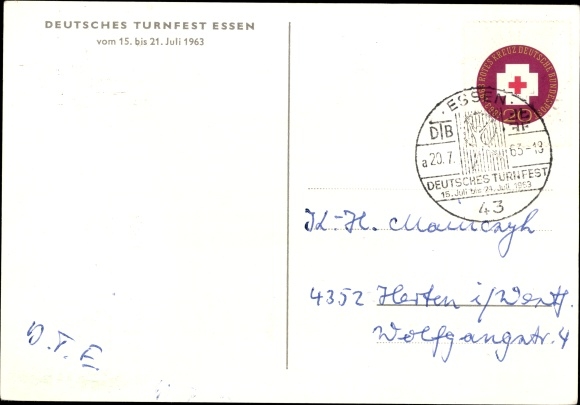 DEUTSCHES TURNFEST ESSEN
vom 15. bis 21. Juli 1963
ROTES KREUZ DEUTSCHE BUNDESPOST
20
ESSEN
DTB
a 20.7. 63-19
DEUTSCHES TURNFEST
15. Juli bis 21. Juli 1963
43
K.-H. Mamczyh
4352 Herten i/Westf.
Wolfgangstr. 4
D.T.E.